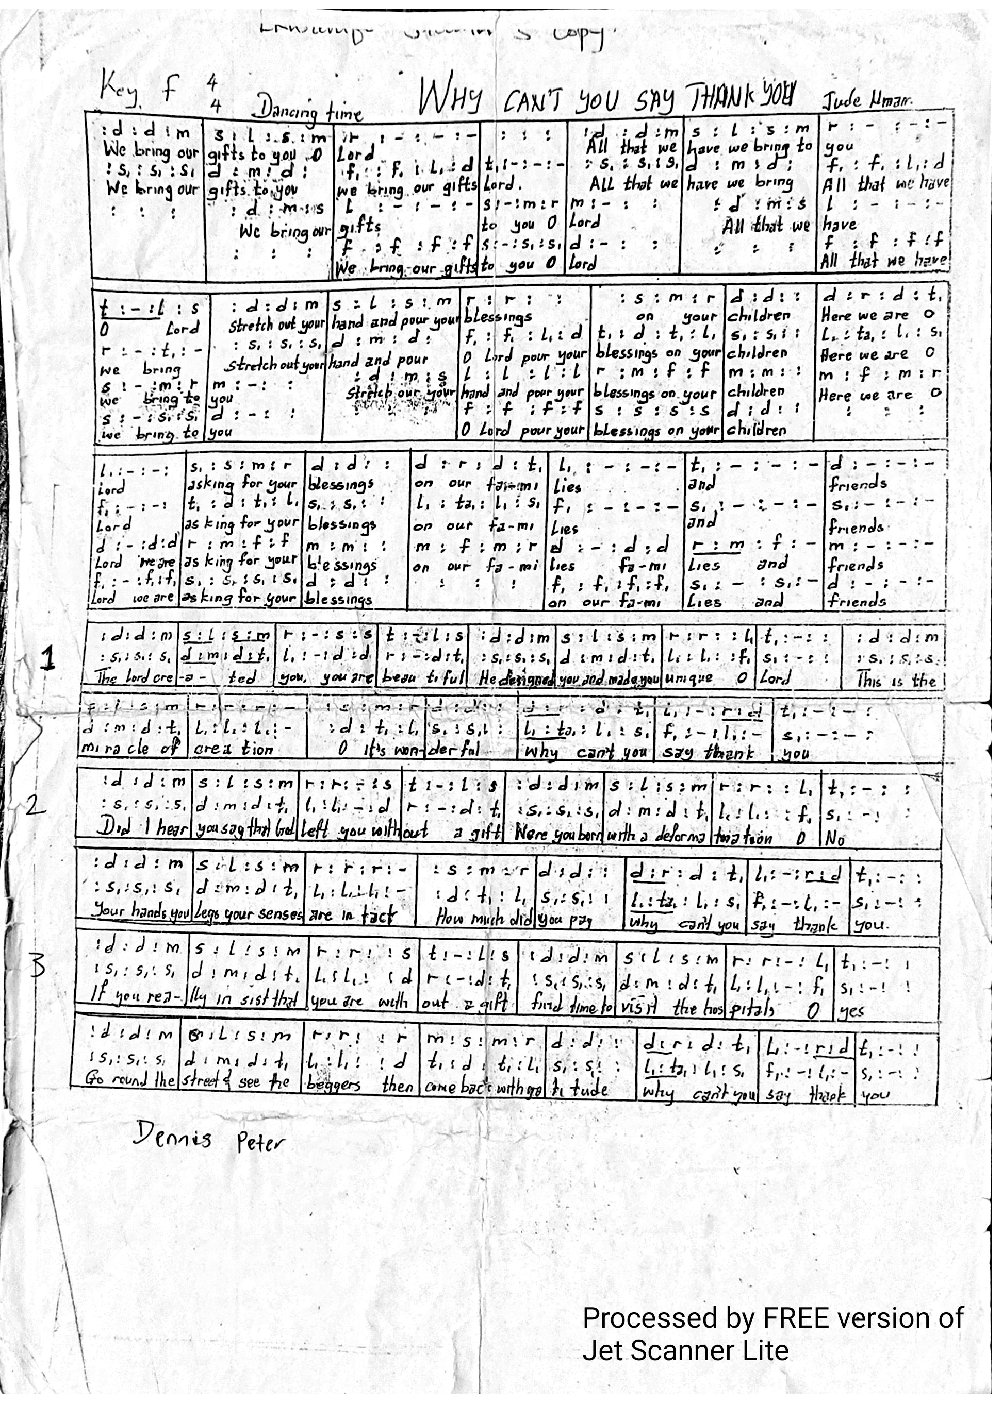 Copy
Key F 4/4 Dancing time WHY CAN'T YOU SAY THANK YOU Jude Nnam.
:d :d :m | s :l :s :m | r :- :- :- | : : : | :d :d :m | s :l :s :m | r :- :- :-
We bring our gifts to you O Lord All that we have we bring to you
:s, :s, :s, | d :m :d : | f, :f, :l, :d | t, :- :- :- | :s, :s, :s, | d :m :d : | f, :f, :l, :d
We bring our gifts to you we bring our gifts Lord. All that we have we bring All that we have
: : : | :d :m :s | l :- :- :- | s :- :m :r | m :- : : | :d :m :s | l :- :- :-
We bring our gifts to you O Lord All that we have
: : : | : : : | f :f :f :f | s :- :s, :s, | d :- : : | : : : | f :f :f :f
We bring our gifts to you O Lord All that we have
t :- :l :s | :d :d :m | s :l :s :m | r :r : : | :s :m :r | d :d : : | d :r :d :t,
O Lord Stretch out your hand and pour your blessings on your children Here we are O
r :- :t, :- | :s, :s, :s, | d :m :d : | f, :f, :l, :d | t, :d :t, :l, | s, :s, : : | l, :ta, :l, :s,
we bring Stretch out your hand and pour O Lord pour your blessings on your children Here we are O
s :- :m :r | m :- : : | :d :m :s | l :l :l :l | r :m :f :f | m :m : : | m :f :m :r
we bring to you Stretch our your hand and pour your blessings on your children Here we are O
s :- :s, :s, | d :- : : | : : : | f :f :f :f | s :s :s :s | d :d : : | : : :
we bring to you O Lord pour your blessings on your children
l, :- :- :- | s, :s :m :r | d :d : : | d :r :d :t, | l, :- :- :- | t, :- :- :- | d :- :- :-
Lord asking for your blessings on our fa-mi lies and friends
f, :- :- :- | t, :d :t, :l, | s, :s, : : | l, :ta, :l, :s, | f, :- :- :- | s, :- :- :- | s, :- :- :-
Lord asking for your blessings on our fa-mi lies and friends
d :- :d :d | r :m :f :f | m :m : : | m :f :m :r | d :- :d :d | r :m :f :- | m :- :- :-
Lord we are asking for your blessings on our fa-mi lies fa-mi lies and friends
f, :- :f, :f, | s, :s, :s, :s, | d :d : : | : : : | f, :f, :f, :f, | s, :- :s, :- | d :- :- :-
Lord we are asking for your blessings on our fa-mi lies and friends
1 :d :d :m | s :l :s :m | r :- :s :s | t :- :l :s | :d :d :m | s :l :s :m | r :r : :l, | t, :- : : | :d :d :m
:s, :s, :s, | d :m :d :t, | l, :- :d :d | r :- :d :t, | :s, :s, :s, | d :m :d :t, | l, :l, : :f, | s, :- : : | :s, :s, :s,
The lord cre -a- ted you, you are beau ti ful He designed you and made you unique O Lord This is the
s :l :s :m | r :r :r :- | :s :m :r | d :d : : | d :r :d :t, | l, :- :r :d | t, :- :- :
d :m :d :t, | l, :l, :l, :- | :d :t, :l, | s, :s, : | l, :ta, :l, :s, | f, :- :l, :- | s, :- :- :
miracle of crea tion O it's won-der ful why can't you say thank you
2 :d :d :m | s :l :s :m | r :r :- :s | t :- :l :s | :d :d :m | s :l :s :m | r :r : :l, | t, :- : :
:s, :s, :s, | d :m :d :t, | l, :l, :- :d | r :- :d :t, | :s, :s, :s, | d :m :d :t, | l, :l, : :f, | s, :- : :
Did I hear you say that God left you without a gift Were you born with a deforma tion O No
:d :d :m | s :l :s :m | r :r :r :- | :s :m :r | d :d : : | d :r :d :t, | l, :- :r :d | t, :- : :
:s, :s, :s, | d :m :d :t, | l, :l, :l, :- | :d :t, :l, | s, :s, : : | l, :ta, :l, :s, | f, :- :l, :- | s, :- : :
Your hands you legs your senses are in tact How much did you pay why can't you say thank you.
3 :d :d :m | s :l :s :m | r :r : :s | t :- :l :s | :d :d :m | s :l :s :m | r :r :- :l, | t, :- : :
:s, :s, :s, | d :m :d :t, | l, :l, : :d | r :- :d :t, | :s, :s, :s, | d :m :d :t, | l, :l, :- :f, | s, :- : :
If you rea- lly in sist that you are with out a gift find time to visit the hos pitals O yes
:d :d :m | s :l :s :m | r :r : :r | m :s :m :r | d :d : : | d :r :d :t, | l, :- :r :d | t, :- : :
:s, :s, :s, | d :m :d :t, | l, :l, : :d | t, :d :t, :l, | s, :s, : : | l, :ta, :l, :s, | f, :- :l, :- | s, :- : :
Go round the street & see the beggers then come back with gra ti tude why can't you say thank you
Dennis Peter
Processed by FREE version of
Jet Scanner Lite